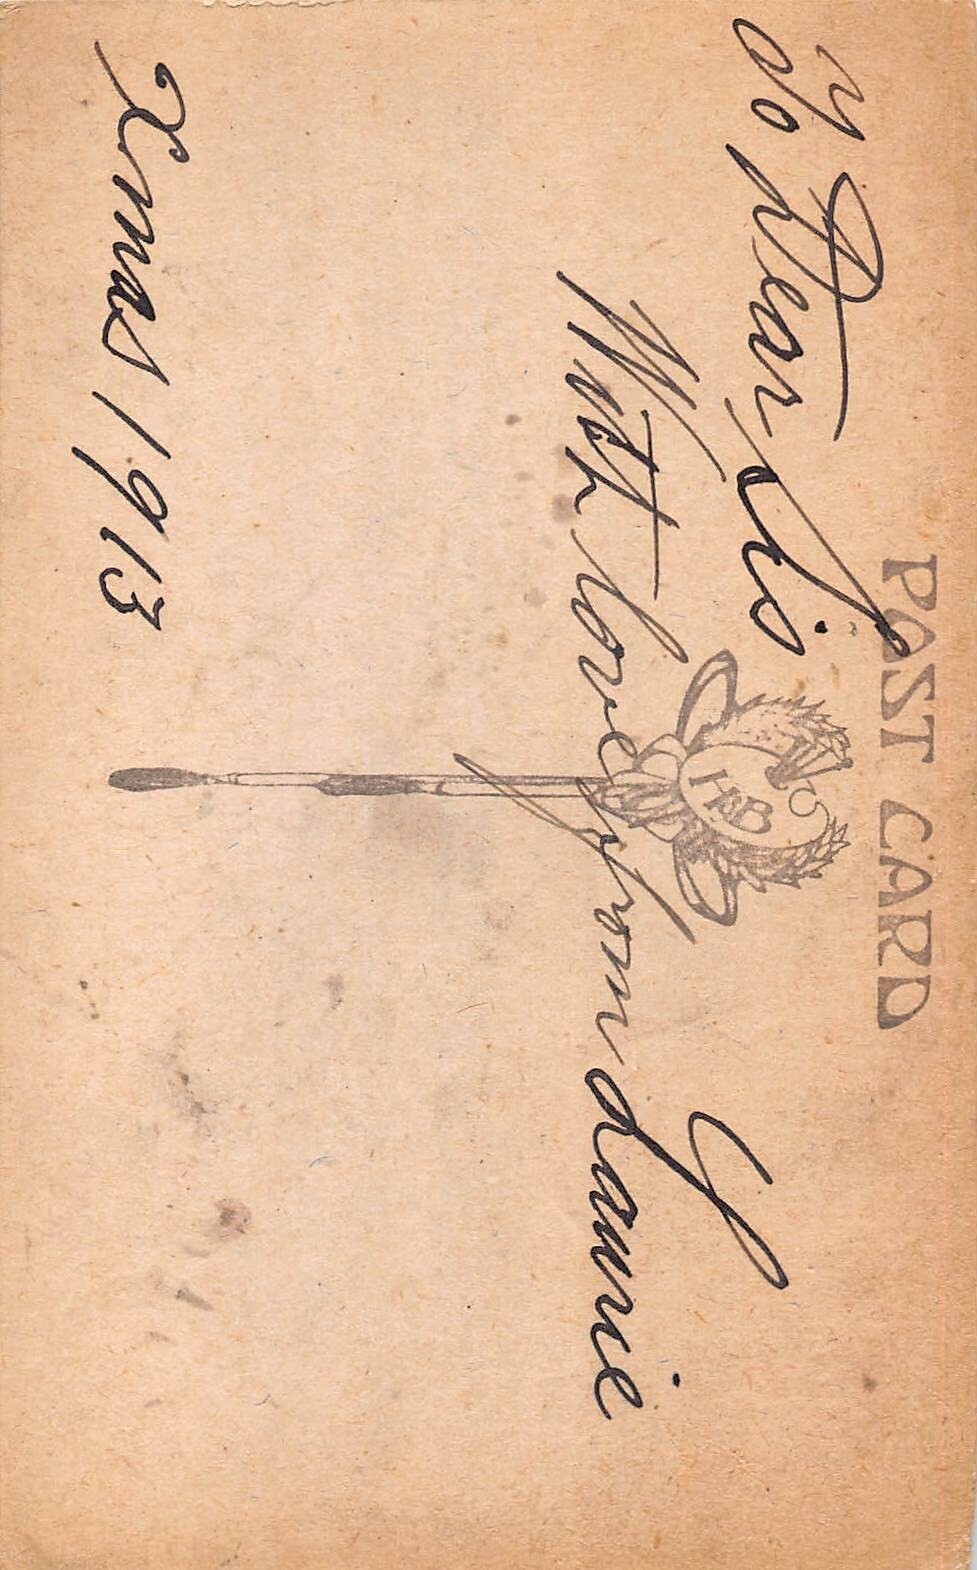 POST CARD
To Dear Sis
H&B
With love from Laurie
Xmas 1913